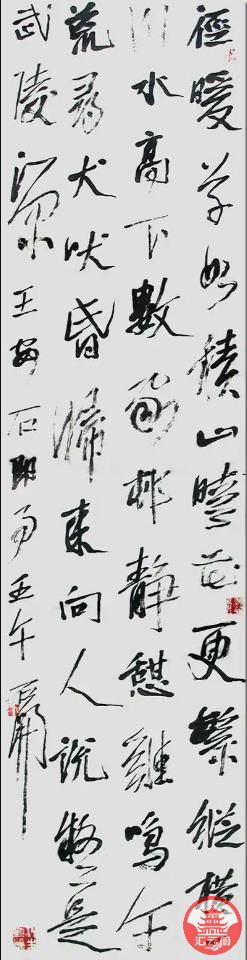 徑暖草如積山晴花更繁縱橫
一川水高下數家邨靜憩雞鳴午
荒尋犬吠昏歸來向人說疑是
武陵源 王安石即事 壬午